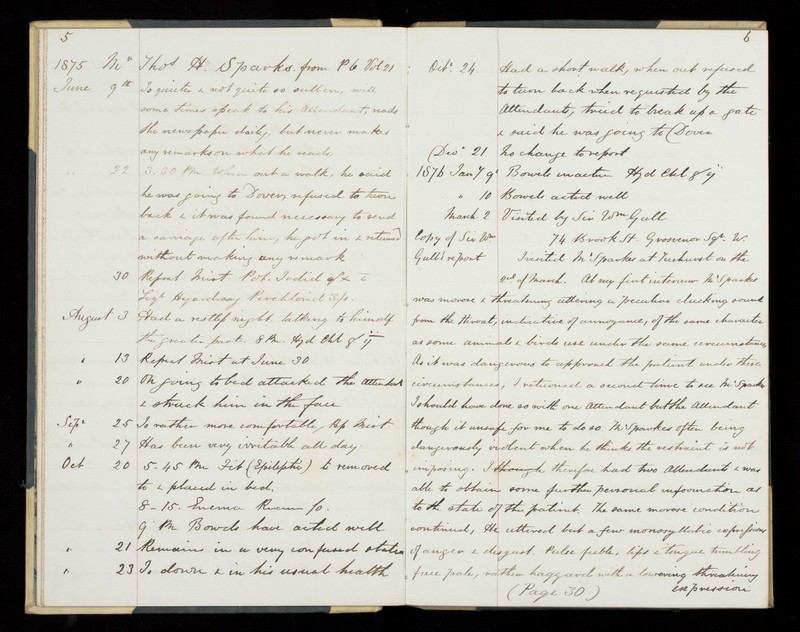 5
1875 Mr Thos H. Sparks. from P6. Vol 21
June 9th Is quieter & not quite so sullen, will
some times speak to his Attendant, reads
the newspaper daily, but never makes
any remarks on what he reads
" 22 3.30 PM When out a walk, he said
he was going to Dover, refused to turn
back & it was found necessary to send
a carriage after him, he got in & returned
without making any remark
30 Repeat Mist Pot. Iodid
Liqr Hydrarg Perchlorid
August 3 Had a restless night talking to himself
the greater part. 8 PM. Hyd Chl gr ij
" 13 Repeat Mist at June 30
" 20 On going to bed attacked the Attendant
& struck him in the face
Sepr 25 Is rather more comfortable, Rep Mist
" 27 Has been very irritable all day
Oct 20 5-45 PM Fit (Epileptic) is removed
to & placed in bed,
8-15. Enema
9 PM Bowels have acted well
" 21 Remains in a very confused state
" 23 Is down & in his usual health
6
Octr. 24. Had a short walk, when out refused
to turn back when requested by the
Attendant, tried to break up a gate
& said he was going to Dover
Decr 21 No change to report
1876 Jany 9 Bowels inactive Hyd Chl gr ij
" 10 Bowels acted well
March 2 Visited by Sir Wm Gull
Copy of Sir Wm 74 Brook St. Grosvenor Sqr. W.
Gull's report I visited Mr Sparkes at Ticehurst on the
2nd of March. At my first interview Mr Sparkes
was morose & threatening uttering a peculiar clucking sound
from the throat, indicative of annoyance, of the same character
as some animals & birds use under the same circumstances
As it was dangerous to approach the patient under these
circumstances, I returned a second time to see Mr Sparkes
I should have done so with one Attendant but the Attendant
though it unsafe for me to do so. Mr Sparkes often being
dangerously violent when he thinks the restraint is not
imposing. I therefore had two Attendants & was
able to obtain some further personal information as
to the state of the patient. The same morose condition
continued, He uttered but a few monosyllabic expressions
of anger & disgust. Pulse feeble, lips & tongue trembling
face pale, rather haggard with a lowering threatening
(Page 30) expression